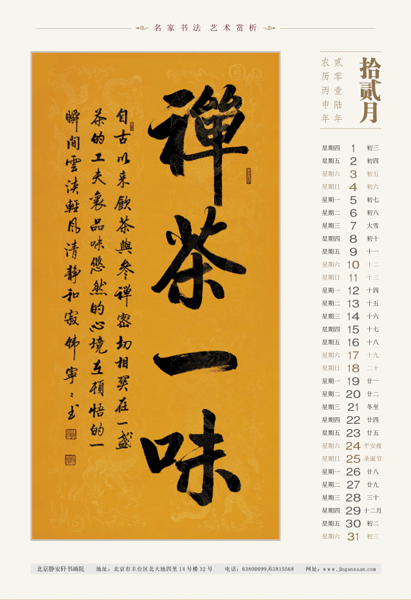 名家书法 艺术赏析
拾贰月
贰零壹陆年
农历丙申年
禪茶一味
自古以来飲茶與參禪密切相関在一盏
茶的工夫裏品味悠然的心境在頓悟的一
瞬間雲淡輕風清靜和寂
星期四 1 初三
星期五 2 初四
星期六 3 初五
星期日 4 初六
星期一 5 初七
星期二 6 初八
星期三 7 大雪
星期四 8 初十
星期五 9 十一
星期六 10 十二
星期日 11 十三
星期一 12 十四
星期二 13 十五
星期三 14 十六
星期四 15 十七
星期五 16 十八
星期六 17 十九
星期日 18 二十
星期一 19 廿一
星期二 20 廿二
星期三 21 冬至
星期四 22 廿四
星期五 23 廿五
星期六 24 平安夜
星期日 25 圣诞节
星期一 26 廿八
星期二 27 廿九
星期三 28 三十
星期四 29 十二月
星期五 30 初二
星期六 31 初三
北京静安轩书画院 地址：北京市丰台区北大地四里14号楼32号 电话：63800099/63815568 网址：www.jinganxuan.com